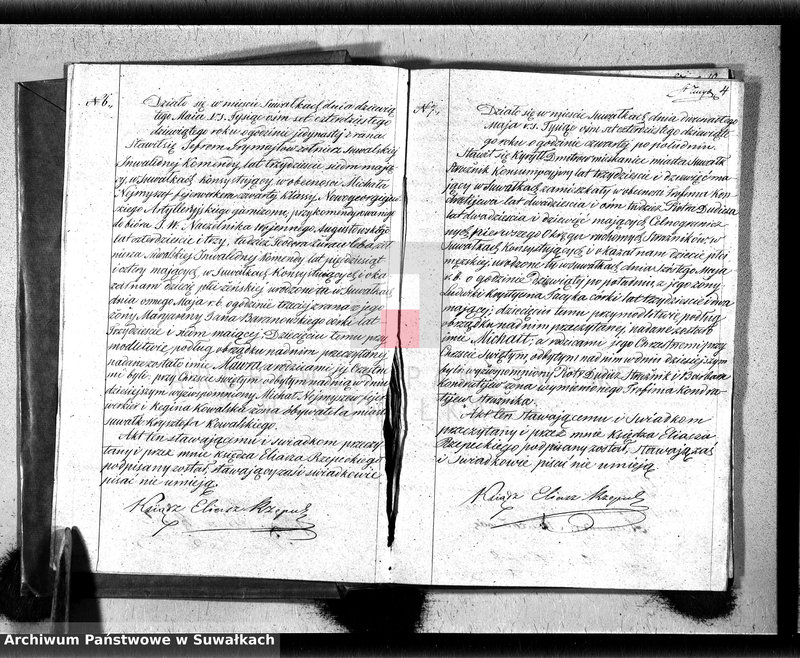 № 6.
Działo się w mieście Suwałkach dnia dziewią
tego Maja v.s. Tysiąc ośm set czterdziestego
dziewiątego roku o godzinie jedynastej z rana
Stawił się Jefrem żołnierz Suwalskiej
Inwalidnej Komendy lat trzydzieście siedm mają
cy, w Suwałkach konsystujący, w obecności Michała
Nejmyszew fejerwerkera czwartej klassy Nowogeorgiew
skiego Artylleryjskiego garnizonu, przykomendyrowanego
do biura J. W. Naczelnika wojennego Augustowskiego
lat czterdzieście i trzy, tudzież Fedora żoł
nierza Suwalskiej Inwalidnej Komendy lat pięćdziesiąt
i cztery mających, w Suwałkach Konsystujących i oka
zał nam dziecię płci żeńskiej urodzone tu w Suwałkach
dnia osmego Maja r.b. o godzinie trzeciej z rana z jego
żony Maryanny Jana Baranowskiego córki lat
Trzydzieście i ośm mającej; Dziecięciu temu przy
modlitwie podług obrządku nad nim przeczytanej
nadane zostało imie Maura, a rodzicami jej Chrzestne
mi byli przy Chrzcie Swiętym odbytym nad nią w dniu
dzisiejszym wyż wspomniony Michał Nejmyszew fejer
werker i Regina Kowalska żona Obywatela miasta
Suwałk Krysztofa Kowalskiego.
Akt ten stawającemu i świadkom przeczy
tany i przez mnie księdza Eliasza Rzepeckiego
podpisany został, stawający zaś i świadkowie
pisać nie umieją.
Ksiądz Eliasz Rzepecki
4
№ 7.
Działo się w mieście Suwałkach dnia dwunastego
Maja v.s. Tysiąc ośm set czterdziestego dziewiąte
go roku o godzinie czwartej po południu.
Stawił się Kyryłł Dmitrow mieszkaniec miasta Suwałk
Strażnik Konsumpcyjny lat trzydzieście i dziewięć ma
jący w Suwałkach zamieszkały w obecności Trofima Kon
dratjewa lat dwadzieścia i ośm tudzież Piotra Dudicza
lat dwadzieścia i dziewięć mających Celnogranicz
nych pierwszego Okręgu ruchomych Strażników w
Suwałkach Konsystujących i okazał nam dziecię płci
męzkiej urodzone tu w Suwałkach dnia szóstego Maja
r.b. o godzinie Dziewiątej po południu z jego żony
Ludwiki Krystyna córki lat trzydzieście i
mającej; dziecięciu temu przy modlitwie podług
obrządku nad nim przeczytanej, nadane zostało
imie Michał, a rodzicami jego Chrzestnemi przy
Chrzcie Swiętym, odbytym nad nim w dniu dzisiejszym
byli wyż wspomniony Piotr Dudicz Strażnik i Barbara
Kondratjew żona wymienionego Trofima Kondra
tjewa Strażnika.
Akt ten Stawającemu i Swiadkom
przeczytany i przez mnie Księdza Eliasza
Rzepeckiego podpisany został, Stawający zaś
i Swiadkowie pisać nie umieją
Ksiądz Eliasz Rzepecki
Archiwum Państwowe w Suwałkach